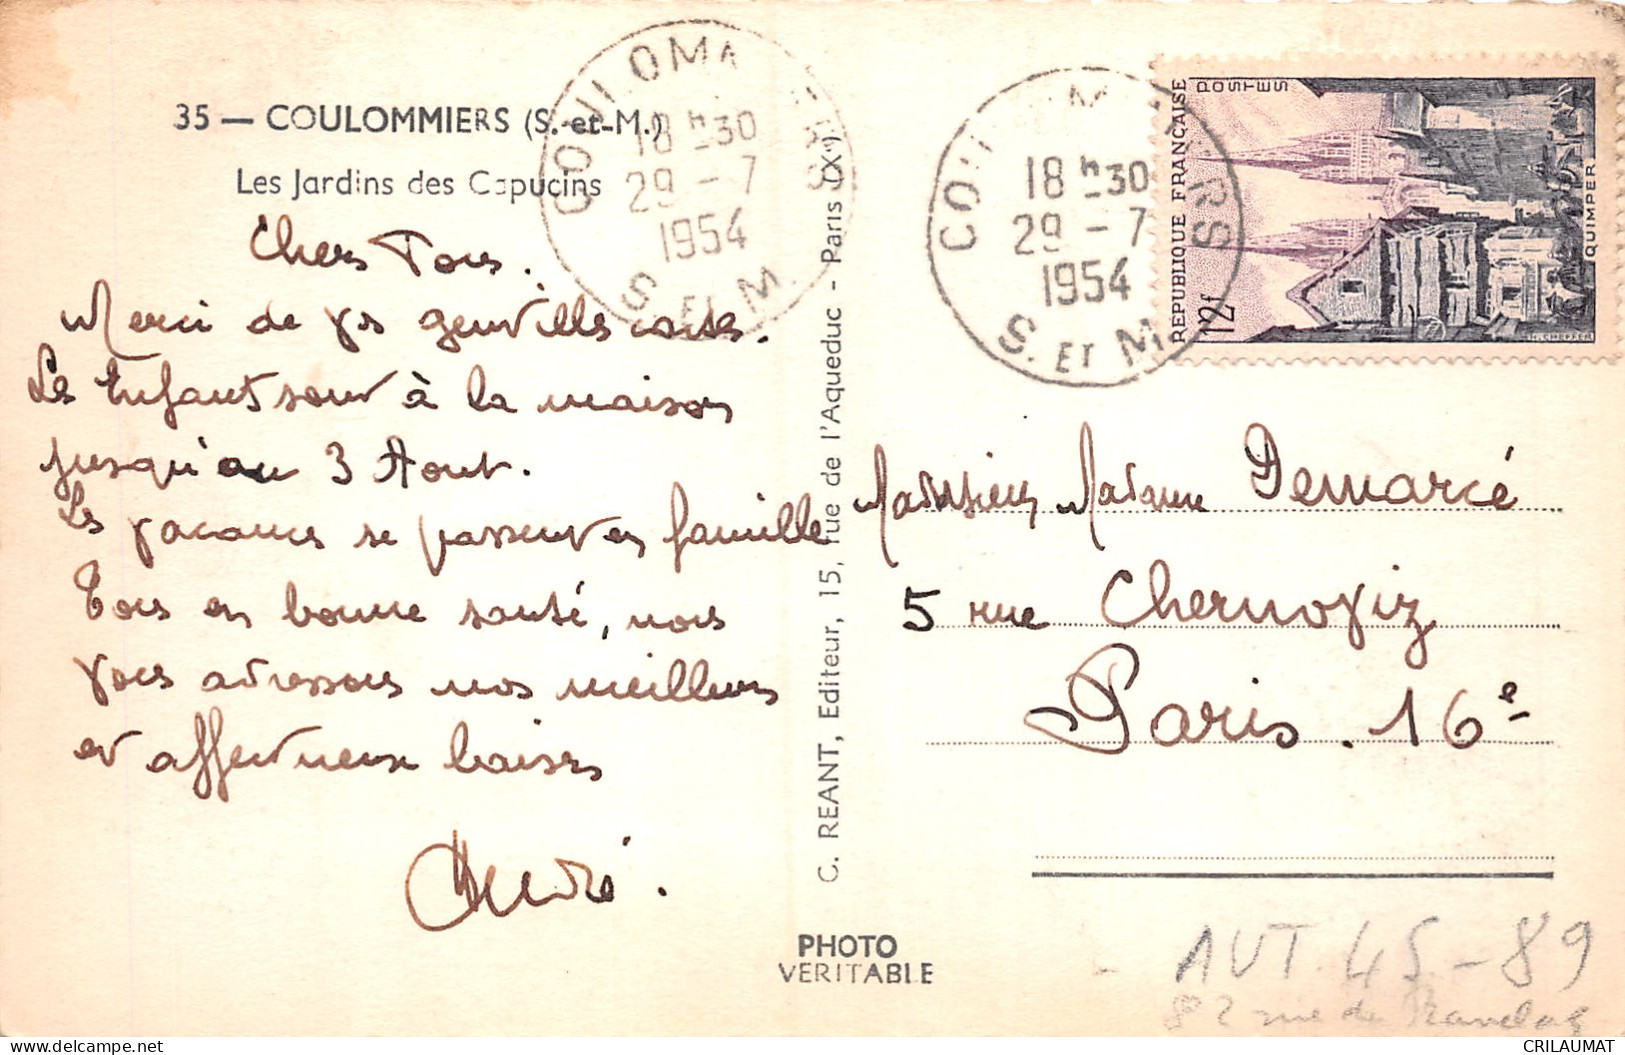 35 — COULOMMIERS (S.-et-M.)
Les Jardins des Capucins
Chers Tous.
Merci de vos gentilles cartes.
Les Enfants sont à la maison
jusqu'au 3 Aout.
Les vacances se passent en famille
Tous en bonne santé, nous
vous adressons nos meilleurs
et affectueux baisers
André.
COULOMMIERS
18 h 30
29 - 7
1954
S. ET M.
COULOMMIERS
18 h 30
29 - 7
1954
S. ET M.
REPUBLIQUE FRANÇAISE
POSTES
12f
QUIMPER
C. REANT, Editeur, 15, rue de l'Aqueduc - Paris (Xe)
PHOTO
VERITABLE
Monsieur Madame Demarcé
5 rue Chernoviz
Paris . 16e
AUT 45-89
82 rue de
CRILAUMAT